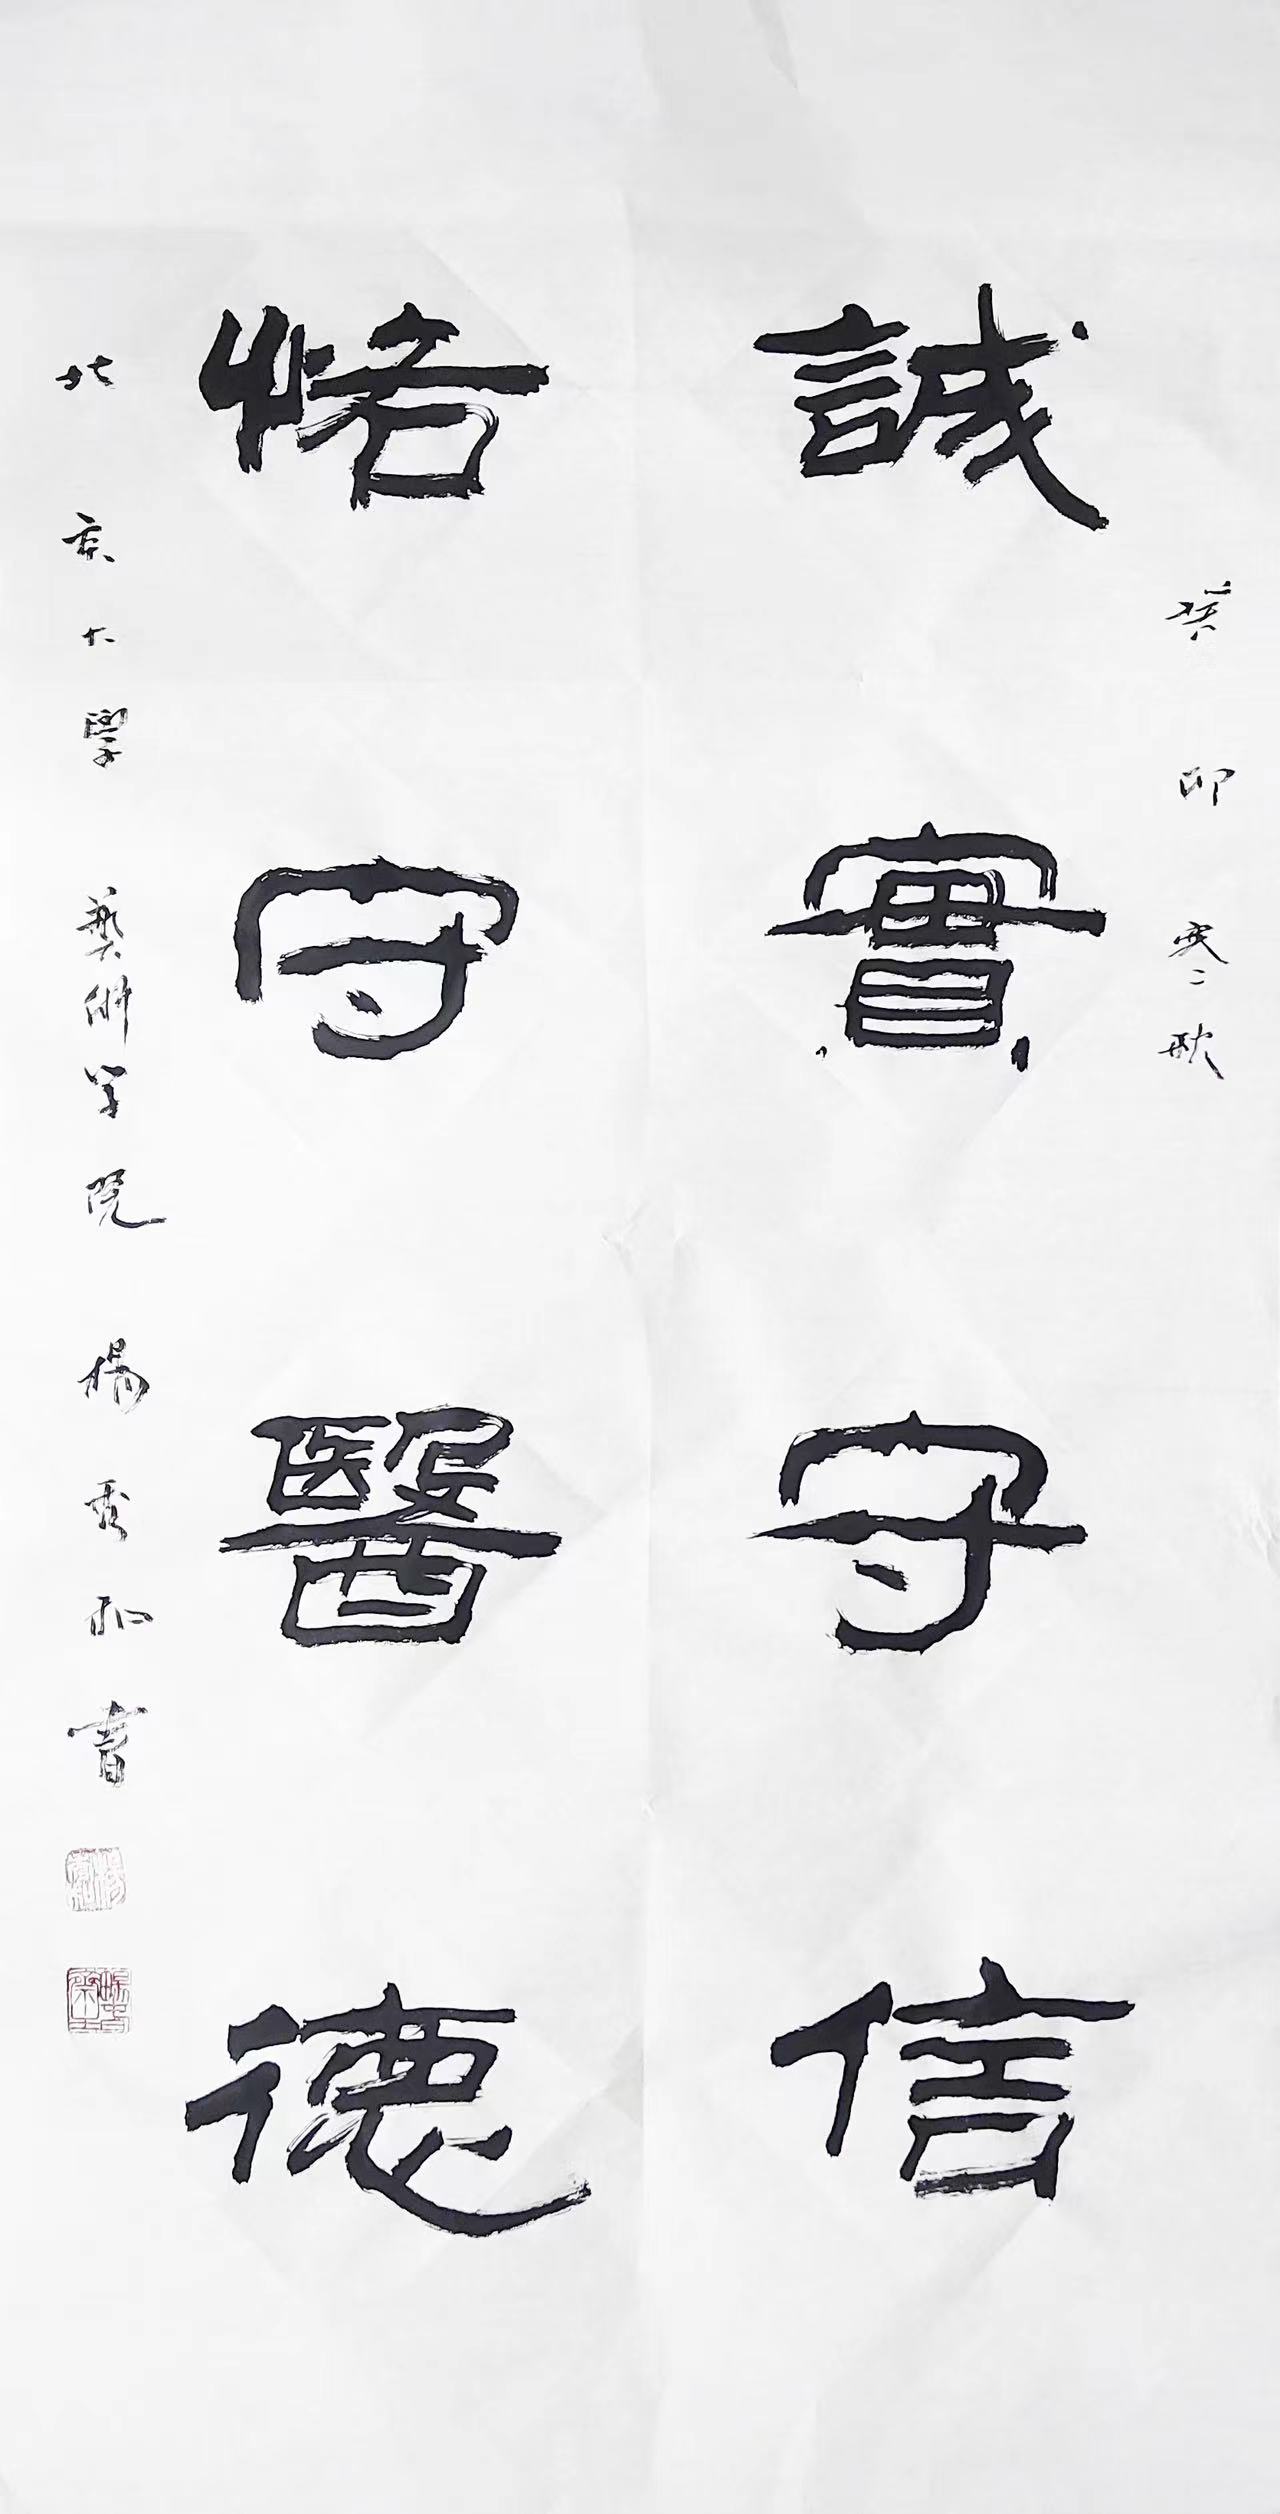 癸卯寒秋
誠實守信
恪守醫德
北京大學藝術學院楊秀和書